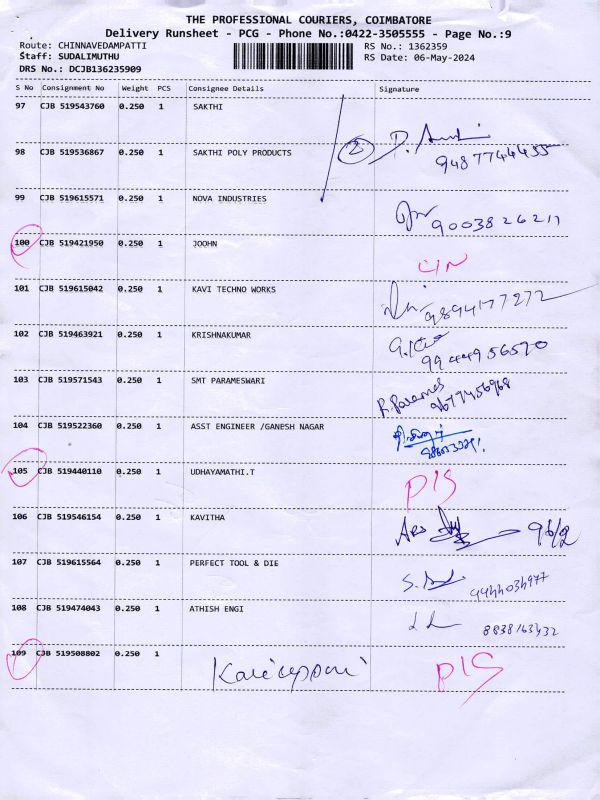 THE PROFESSIONAL COURIERS, COIMBATORE
Delivery Runsheet - PCG - Phone No.:0422-3505555 - Page No.:9
Route: CHINNAVEDAMPATTI RS No.: 1362359
Staff: SUDALIMUTHU RS Date: 06-May-2024
DRS No.: DCJB136235909
S No Consignment No Weight PCS Consignee Details Signature
97 CJB 519543760 0.250 1 SAKTHI
98 CJB 519536867 0.250 1 SAKTHI POLY PRODUCTS 2
99 CJB 519615571 0.250 1 NOVA INDUSTRIES 9003826211
100 CJB 519421950 0.250 1 JOOHN
101 CJB 519615042 0.250 1 KAVI TECHNO WORKS 9894177272
102 CJB 519463921 0.250 1 KRISHNAKUMAR 9944956570
103 CJB 519571543 0.250 1 SMT PARAMESWARI
104 CJB 519522360 0.250 1 ASST ENGINEER /GANESH NAGAR
105 CJB 519440110 0.250 1 UDHAYAMATHI.T DIS
106 CJB 519546154 0.250 1 KAVITHA
107 CJB 519615564 0.250 1 PERFECT TOOL & DIE
108 CJB 519474043 0.250 1 ATHISH ENGI 8838163432
109 CJB 519508802 0.250 1 DIS